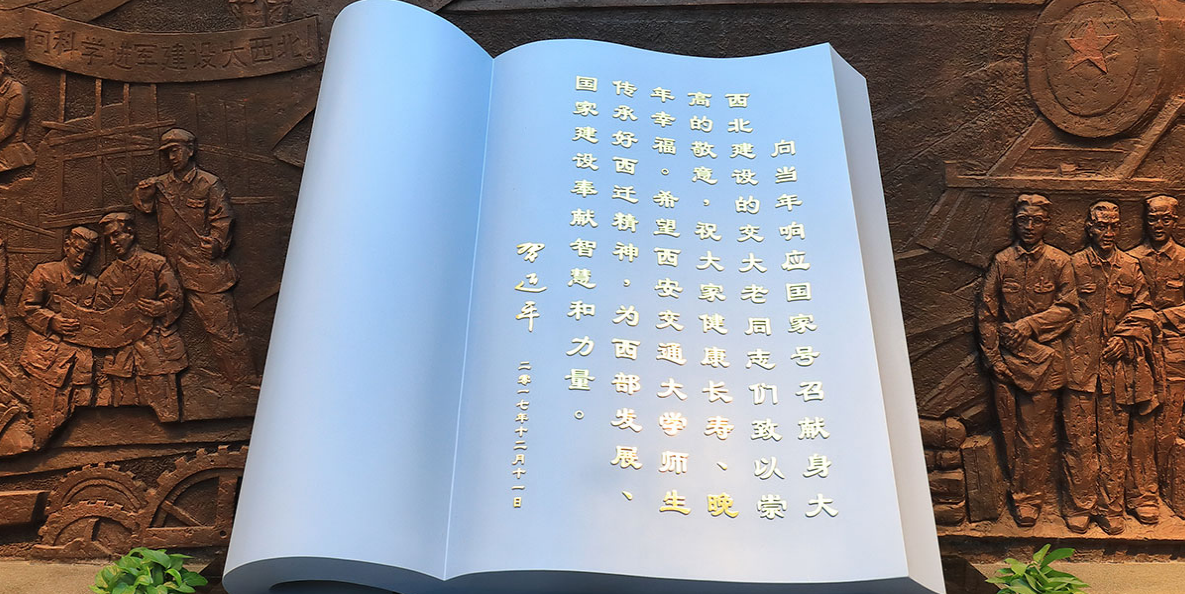 向科学进军建设大西北！
向当年响应国家号召献身大
西北建设的交大老同志们致以崇
高的敬意，祝大家健康长寿、晚
年幸福。希望西安交通大学师生
传承好西迁精神，为西部发展、
国家建设奉献智慧和力量。
习近平
二零一七年十二月十一日